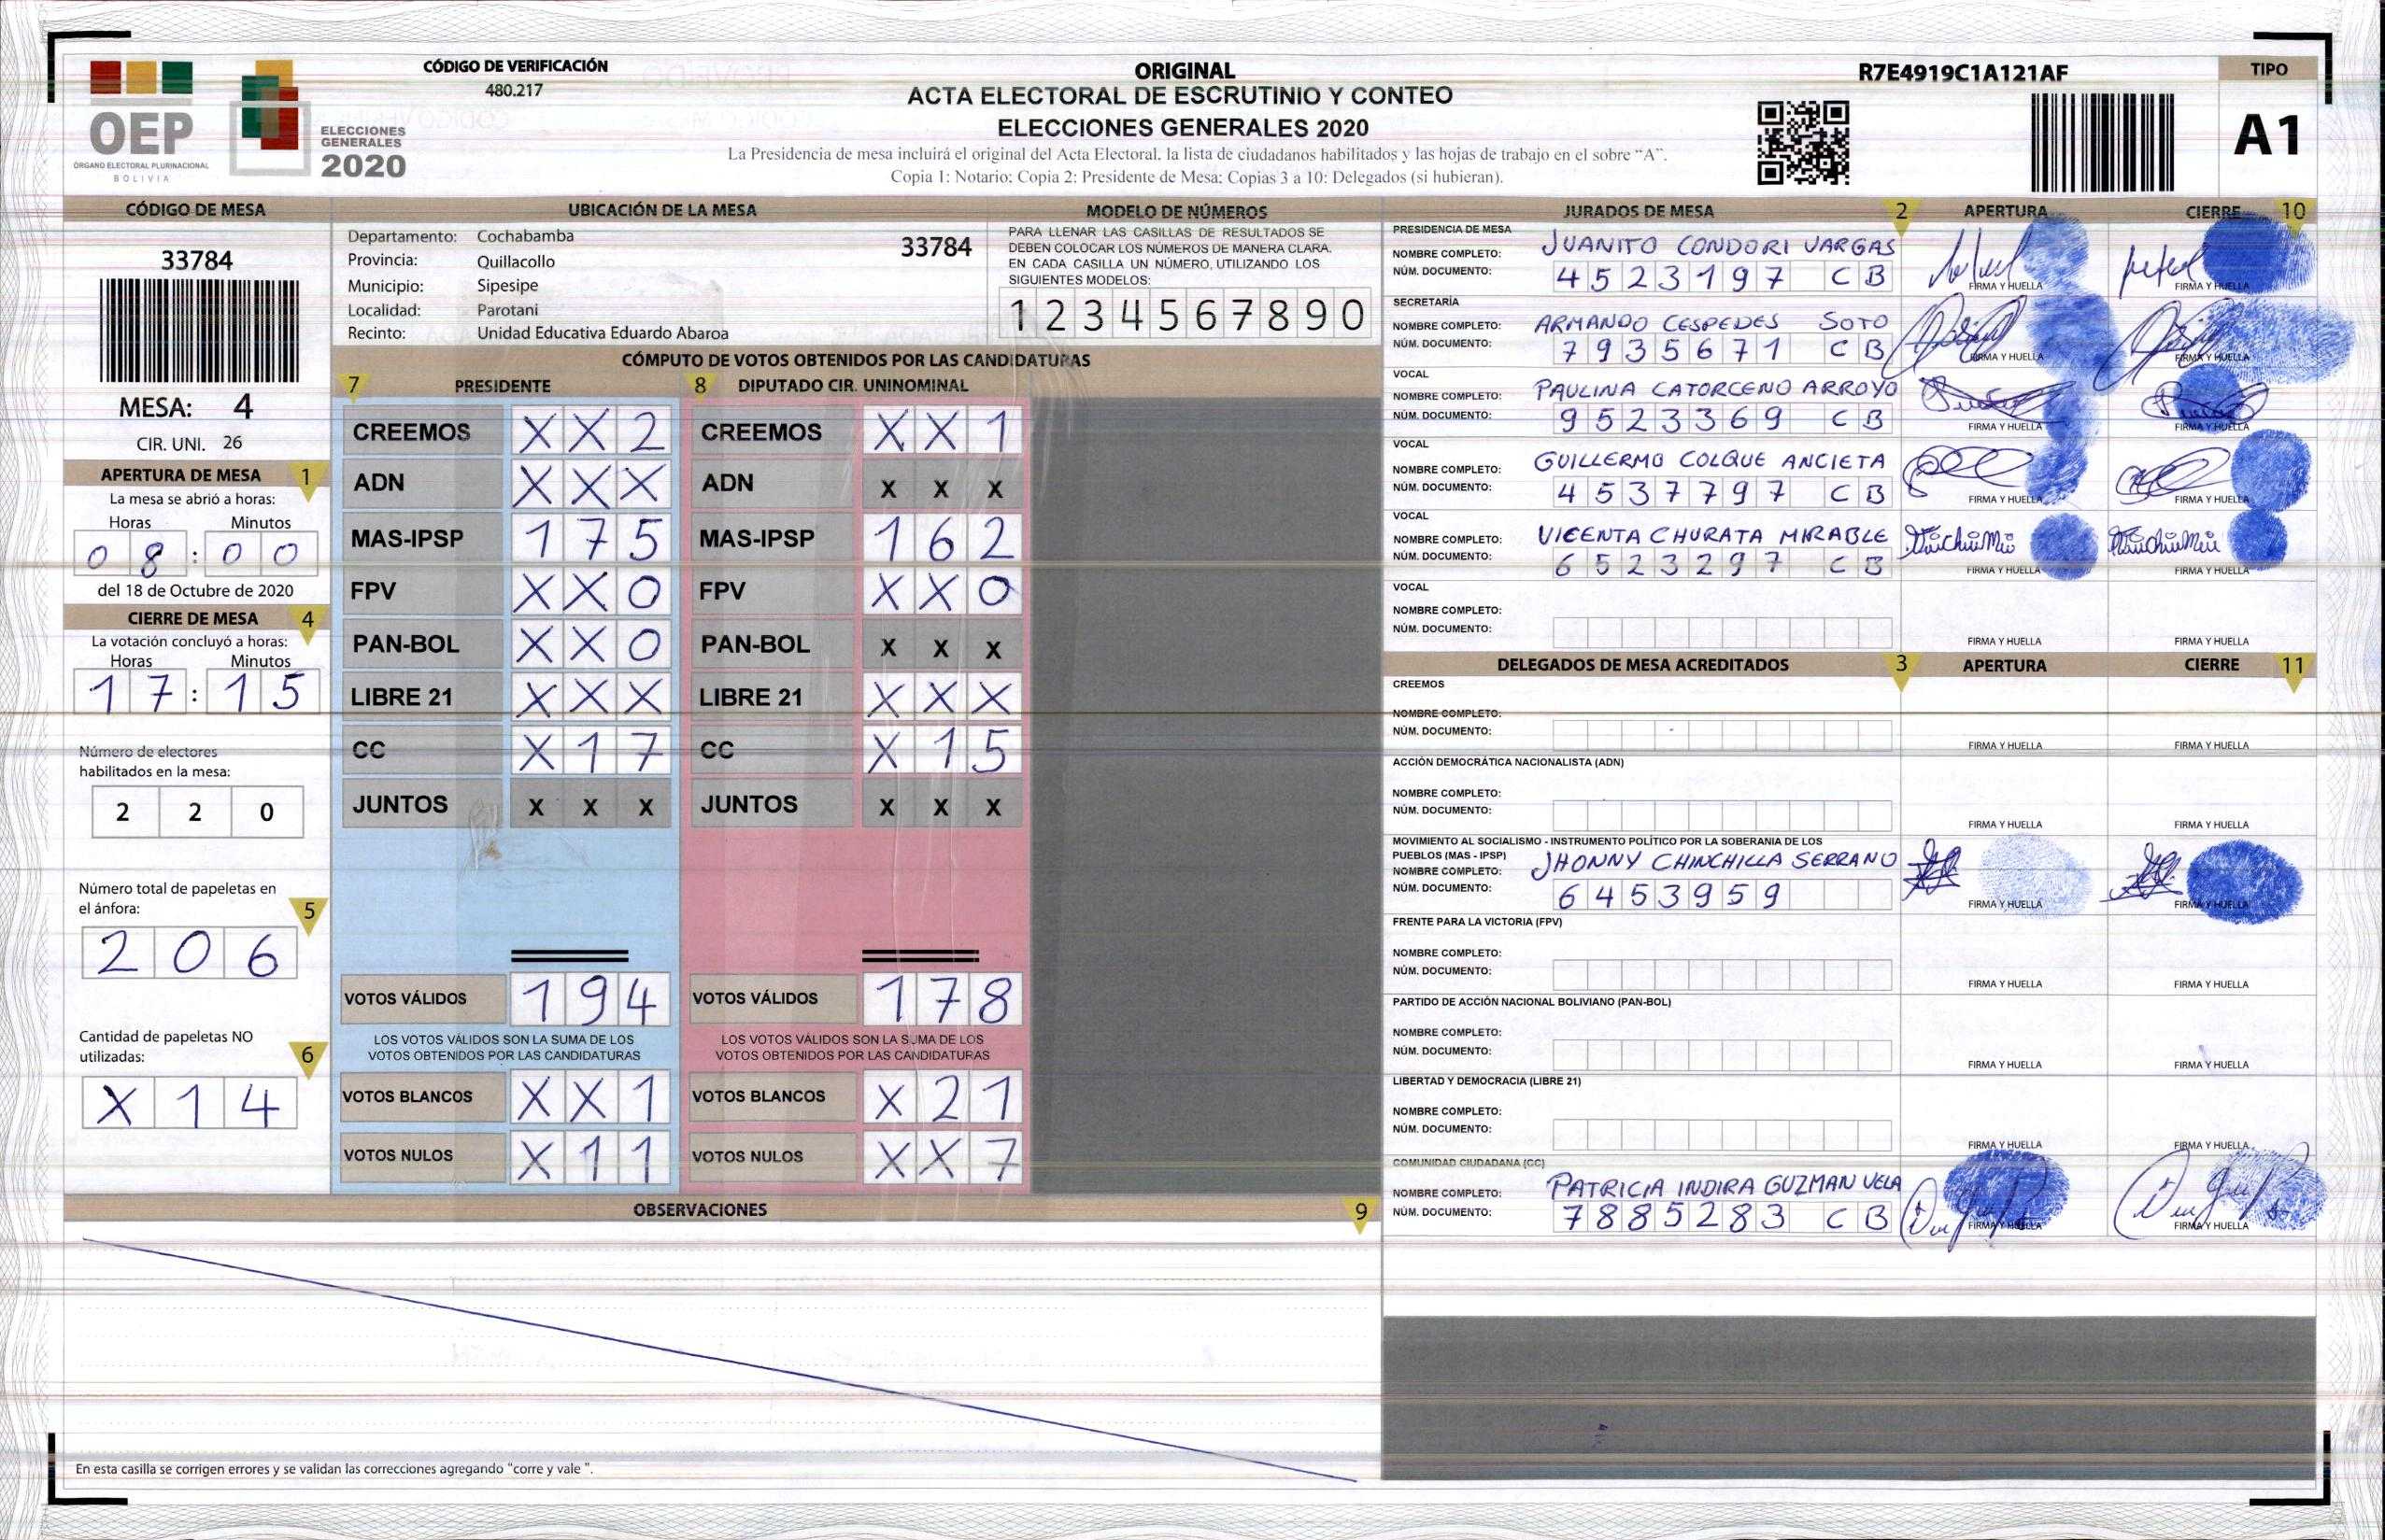 OEP
ÓRGANO ELECTORAL PLURINACIONAL
BOLIVIA
ELECCIONES
GENERALES
2020
CÓDIGO DE VERIFICACIÓN
480.217
ORIGINAL
ACTA ELECTORAL DE ESCRUTINIO Y CONTEO
ELECCIONES GENERALES 2020
La Presidencia de mesa incluirá el original del Acta Electoral, la lista de ciudadanos habilitados y las hojas de trabajo en el sobre "A".
Copia 1: Notario; Copia 2: Presidente de Mesa; Copias 3 a 10: Delegados (si hubieran).
R7E4919C1A121AF
TIPO
A1
CÓDIGO DE MESA
33784
MESA: 4
CIR. UNI. 26
APERTURA DE MESA 1
La mesa se abrió a horas:
Horas Minutos
0 8 : 0 0
del 18 de Octubre de 2020
CIERRE DE MESA 4
La votación concluyó a horas:
Horas Minutos
1 7 : 1 5
Número de electores
habilitados en la mesa:
2 2 0
Número total de papeletas en
el ánfora: 5
2 0 6
Cantidad de papeletas NO
utilizadas: 6
X 1 4
UBICACIÓN DE LA MESA
Departamento: Cochabamba
33784
Provincia: Quillacollo
Municipio: Sipesipe
Localidad: Parotani
Recinto: Unidad Educativa Eduardo Abaroa
MODELO DE NÚMEROS
PARA LLENAR LAS CASILLAS DE RESULTADOS SE
DEBEN COLOCAR LOS NÚMEROS DE MANERA CLARA.
EN CADA CASILLA UN NÚMERO, UTILIZANDO LOS
SIGUIENTES MODELOS:
1 2 3 4 5 6 7 8 9 0
CÓMPUTO DE VOTOS OBTENIDOS POR LAS CANDIDATURAS
7 PRESIDENTE 8 DIPUTADO CIR. UNINOMINAL
CREEMOS X X 2 CREEMOS X X 1
ADN X X X ADN X X X
MAS-IPSP 1 7 5 MAS-IPSP 1 6 2
FPV X X 0 FPV X X 0
PAN-BOL X X 0 PAN-BOL X X X
LIBRE 21 X X X LIBRE 21 X X X
CC X 1 7 CC X 1 5
JUNTOS X X X JUNTOS X X X
VOTOS VÁLIDOS 1 9 4 VOTOS VÁLIDOS 1 7 8
LOS VOTOS VÁLIDOS SON LA SUMA DE LOS LOS VOTOS VÁLIDOS SON LA SUMA DE LOS
VOTOS OBTENIDOS POR LAS CANDIDATURAS VOTOS OBTENIDOS POR LAS CANDIDATURAS
VOTOS BLANCOS X X 1 VOTOS BLANCOS X 2 1
VOTOS NULOS X 1 1 VOTOS NULOS X X 7
OBSERVACIONES 9
En esta casilla se corrigen errores y se validan las correcciones agregando "corre y vale ".
JURADOS DE MESA 2 APERTURA CIERRE 10
PRESIDENCIA DE MESA
NOMBRE COMPLETO: JUANITO CONDORI VARGAS
NÚM. DOCUMENTO: 4 5 2 3 1 9 7 C B
FIRMA Y HUELLA FIRMA Y HUELLA
SECRETARÍA
NOMBRE COMPLETO: ARMANDO CESPEDES SOTO
NÚM. DOCUMENTO: 7 9 3 5 6 7 1 C B
FIRMA Y HUELLA FIRMA Y HUELLA
VOCAL
NOMBRE COMPLETO: PAULINA CATORCENO ARROYO
NÚM. DOCUMENTO: 9 5 2 3 3 6 9 C B
FIRMA Y HUELLA FIRMA Y HUELLA
VOCAL
NOMBRE COMPLETO: GUILLERMO COLQUE ANCIETA
NÚM. DOCUMENTO: 4 5 3 7 7 9 7 C B
FIRMA Y HUELLA FIRMA Y HUELLA
VOCAL
NOMBRE COMPLETO: VICENTA CHURATA MIRABLE
NÚM. DOCUMENTO: 6 5 2 3 2 9 7 C B
FIRMA Y HUELLA FIRMA Y HUELLA
VOCAL
NOMBRE COMPLETO:
NÚM. DOCUMENTO:
FIRMA Y HUELLA FIRMA Y HUELLA
DELEGADOS DE MESA ACREDITADOS 3 APERTURA CIERRE 11
CREEMOS
NOMBRE COMPLETO:
NÚM. DOCUMENTO:
FIRMA Y HUELLA FIRMA Y HUELLA
ACCIÓN DEMOCRÁTICA NACIONALISTA (ADN)
NOMBRE COMPLETO:
NÚM. DOCUMENTO:
FIRMA Y HUELLA FIRMA Y HUELLA
MOVIMIENTO AL SOCIALISMO - INSTRUMENTO POLÍTICO POR LA SOBERANIA DE LOS
PUEBLOS (MAS - IPSP)
NOMBRE COMPLETO: JHONNY CHINCHILLA SERRANO
NÚM. DOCUMENTO: 6 4 5 3 9 5 9
FIRMA Y HUELLA FIRMA Y HUELLA
FRENTE PARA LA VICTORIA (FPV)
NOMBRE COMPLETO:
NÚM. DOCUMENTO:
FIRMA Y HUELLA FIRMA Y HUELLA
PARTIDO DE ACCIÓN NACIONAL BOLIVIANO (PAN-BOL)
NOMBRE COMPLETO:
NÚM. DOCUMENTO:
FIRMA Y HUELLA FIRMA Y HUELLA
LIBERTAD Y DEMOCRACIA (LIBRE 21)
NOMBRE COMPLETO:
NÚM. DOCUMENTO:
FIRMA Y HUELLA FIRMA Y HUELLA
COMUNIDAD CIUDADANA (CC)
NOMBRE COMPLETO: PATRICIA INDIRA GUZMAN VELA
NÚM. DOCUMENTO: 7 8 8 5 2 8 3 C B
FIRMA Y HUELLA FIRMA Y HUELLA